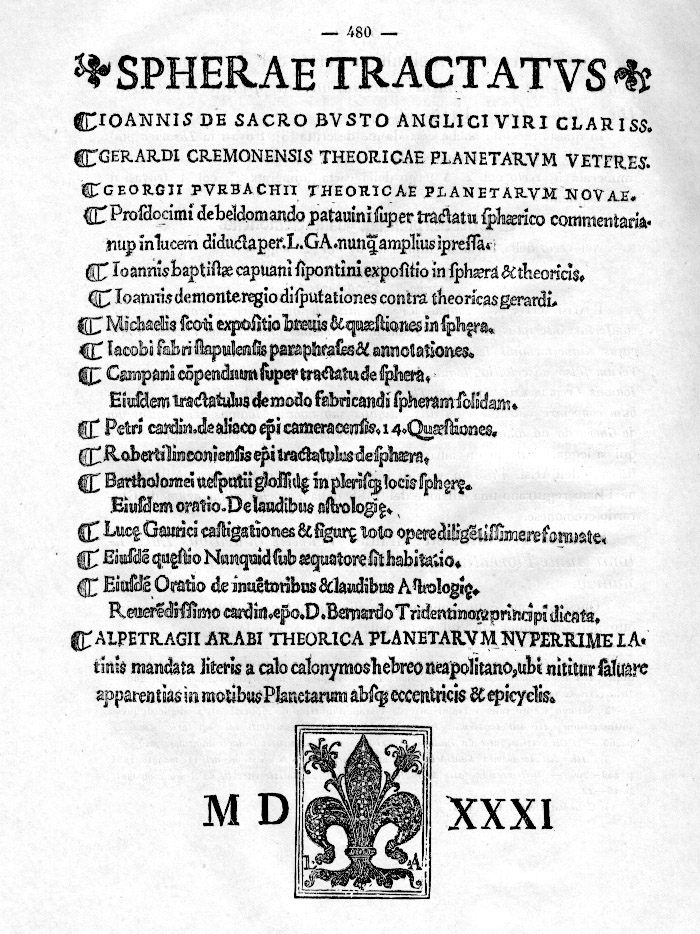 — 480 —
SPHERAE TRACTATVS
IOANNIS DE SACRO BVSTO ANGLICI VIRI CLARISS.
GERARDI CREMONENSIS THEORICAE PLANETARVM VETERES.
GEORGII PVRBACHII THEORICAE PLANETARVM NOVAE.
Proſdocimi de beldomando patauini ſuper tractatu ſphærico commentaria.
nup in lucem diducta per .L.GA. nunq̄ amplius ip̄reſſa.
Ioannis baptiſtæ capuani ſipontini expoſitio in ſphæra & theoricis.
Ioannis demonteregio diſputationes contra theoricas gerardi.
Michaelis ſcoti expoſitio breuis & quæſtiones in ſphęra.
Iacobi fabri ſtapulenſis paraphraſes & annotationes.
Campani cōpendium ſuper tractatu de ſphera.
Eiuſdem tractatulus de modo fabricandi ſpheram ſolidam.
Petri cardin. de aliaco ep̄i cameracenſis .14. Quæſtiones.
Roberti linconienſis ep̄i tractatulus de ſphæra.
Bartholomei ueſputii gloſſulę in pleriſq; locis ſphęrę.
Eiuſdem oratio. De laudibus aſtrologię.
Lucę Gaurici caſtigationes & figurę toto opere diligētiſſime reformate.
Eiuſdē quęſtio Nunquid ſub æquatore ſit habitatio.
Eiuſdē Oratio de inuētoribus & laudibus Aſtrologię.
Reuerēdiſſimo cardin. ep̄o. D. Bernardo Tridentinoꝝ principi dicata.
ALPETRAGII ARABI THEORICA PLANETARVM NVPERRIME LA-
tinis mandata literis a calo calonymos hebreo neapolitano, ubi nititur ſaluare
apparentias in motibus Planetarum abſq; eccentricis & epicyclis.
L A
M D XXXI